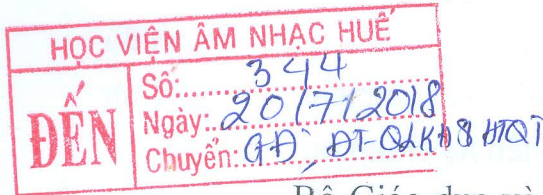 HỌC VIỆN ÂM NHẠC HUẾ
ĐẾN
Số: 344
Ngày: 20/7/2018
Chuyển: GĐ, ĐT-QLKH& HTQT
Bộ Giáo dục và